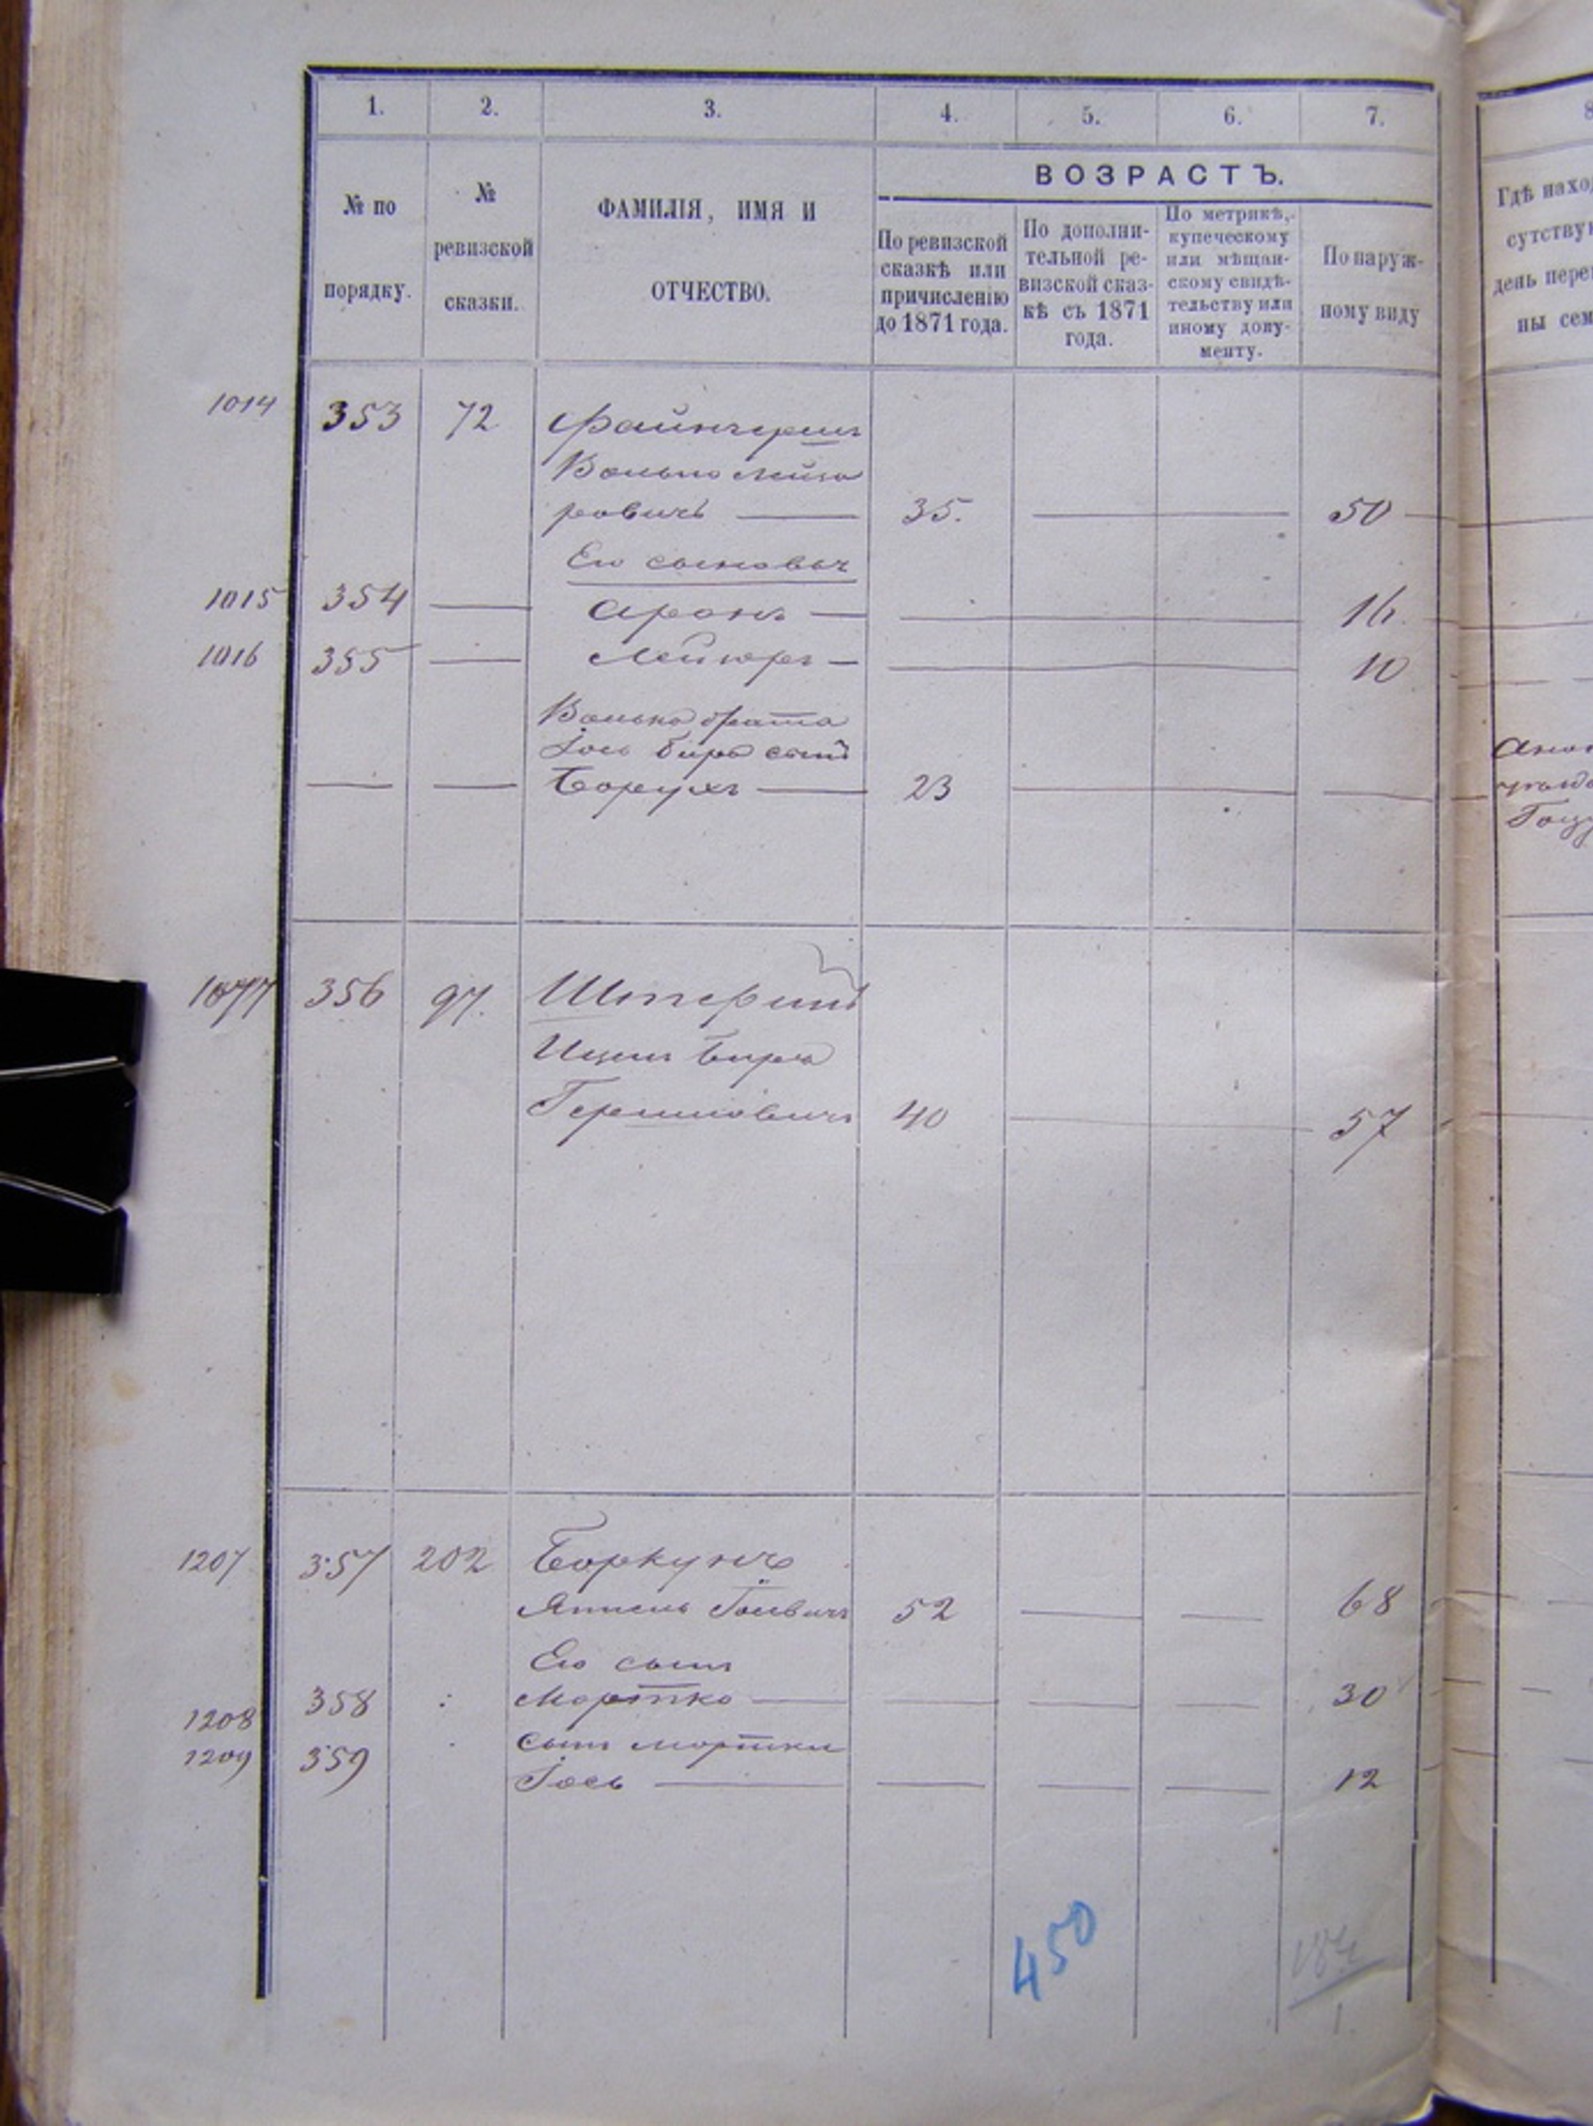 1. 2. 3. 4. 5. 6. 7.
№ по порядку.
№ ревизской сказки.
ФАМИЛІЯ, ИМЯ И
ОТЧЕСТВО.
ВОЗРАСТЪ.
По ревизской
сказкѣ или
причисленію
до 1871 года.
По дополни-
тельной ре-
визской сказ-
кѣ съ 1871
года.
По метрикѣ,
купеческому
или мѣщан-
скому свидѣ-
тельству или
иному доку-
менту.
По наруж-
ному виду
1014 353 72
Волько Лейзе
ровичъ — 35. — 50
Его сыновья
1015 354 — Аронъ — 16.
1016 355 — Лейзеръ — 10
Волька брата
Іось Бера сынъ
— — Борухъ — 23 — —
356 97. Штернъ
Ицка Берка
Гершковичъ 40 — 57
1207 357 202 Боркунъ
Янкель Іосевичъ 52 — — 68
Его сынъ
1208 358 Мортко — — — — 30
сынъ Мортки
1209 359 Іось — — — — 12
450
Гдѣ нахо
сутству
день пере
ны сем